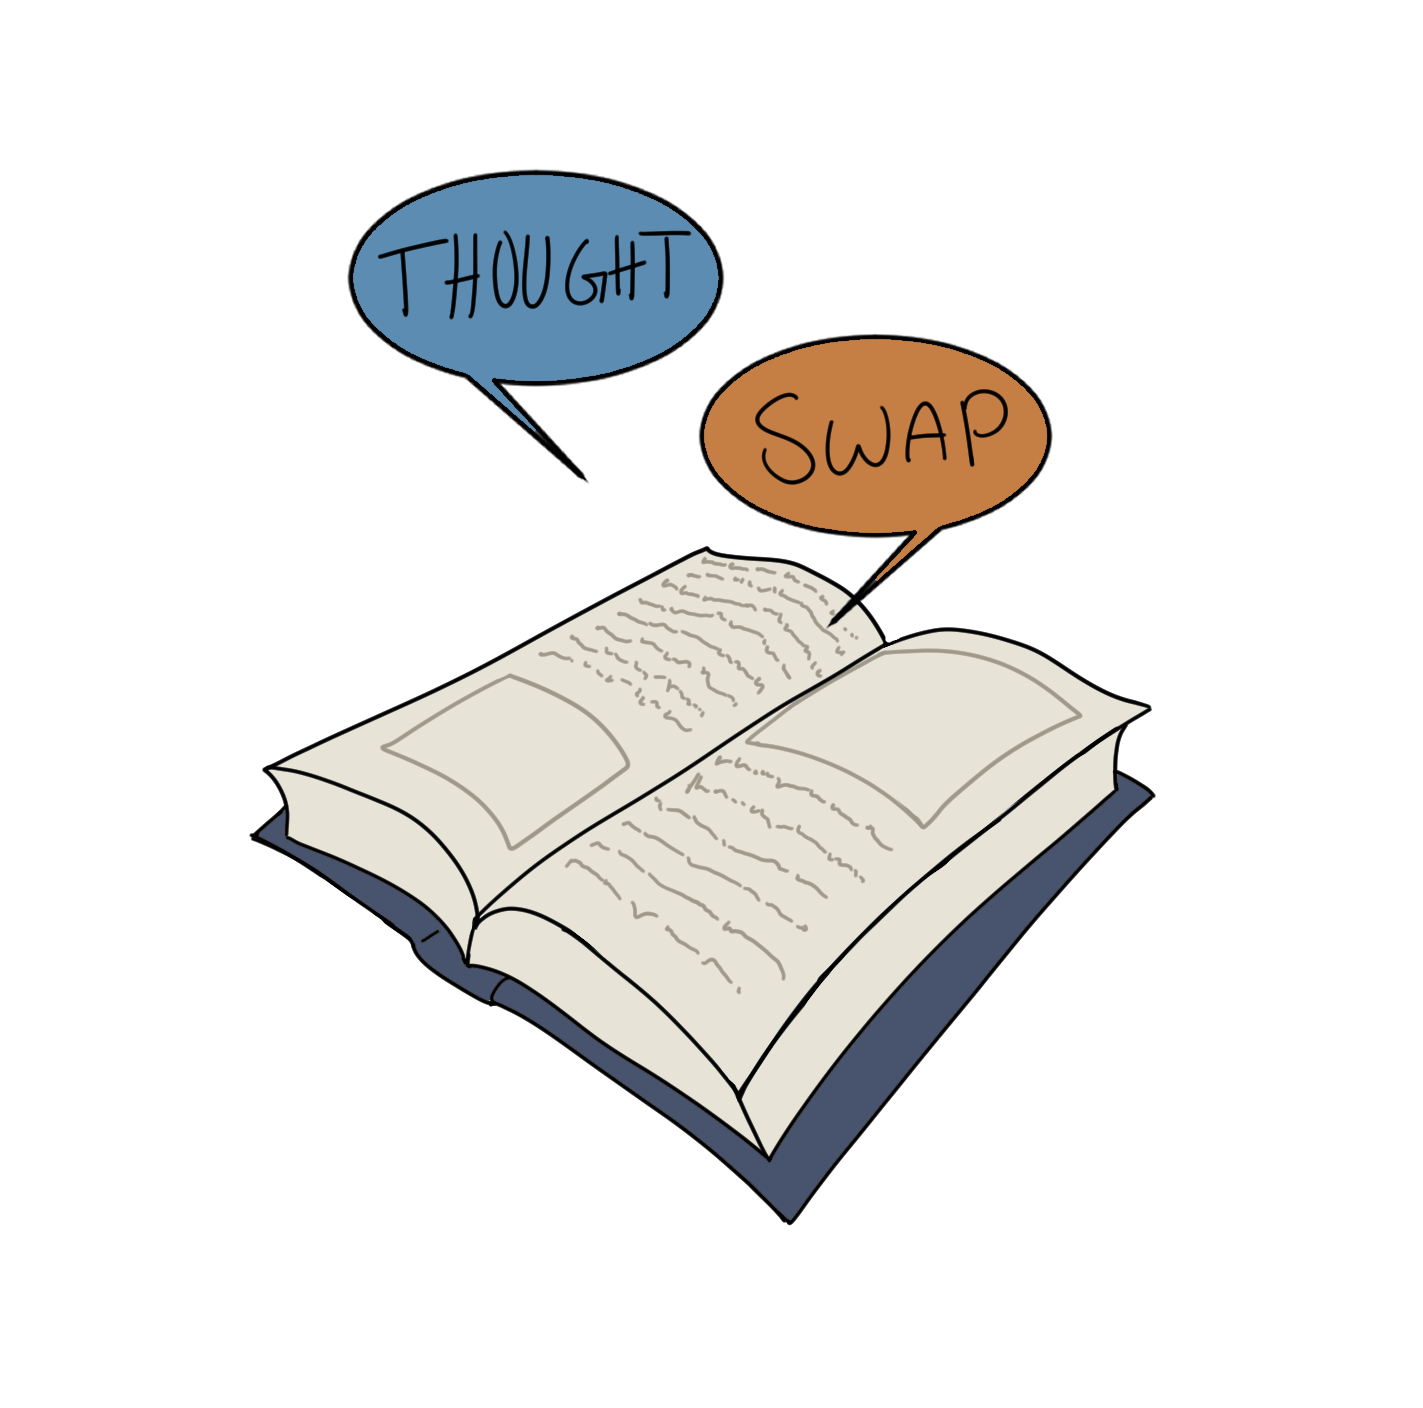 THOUGHT
SWAP